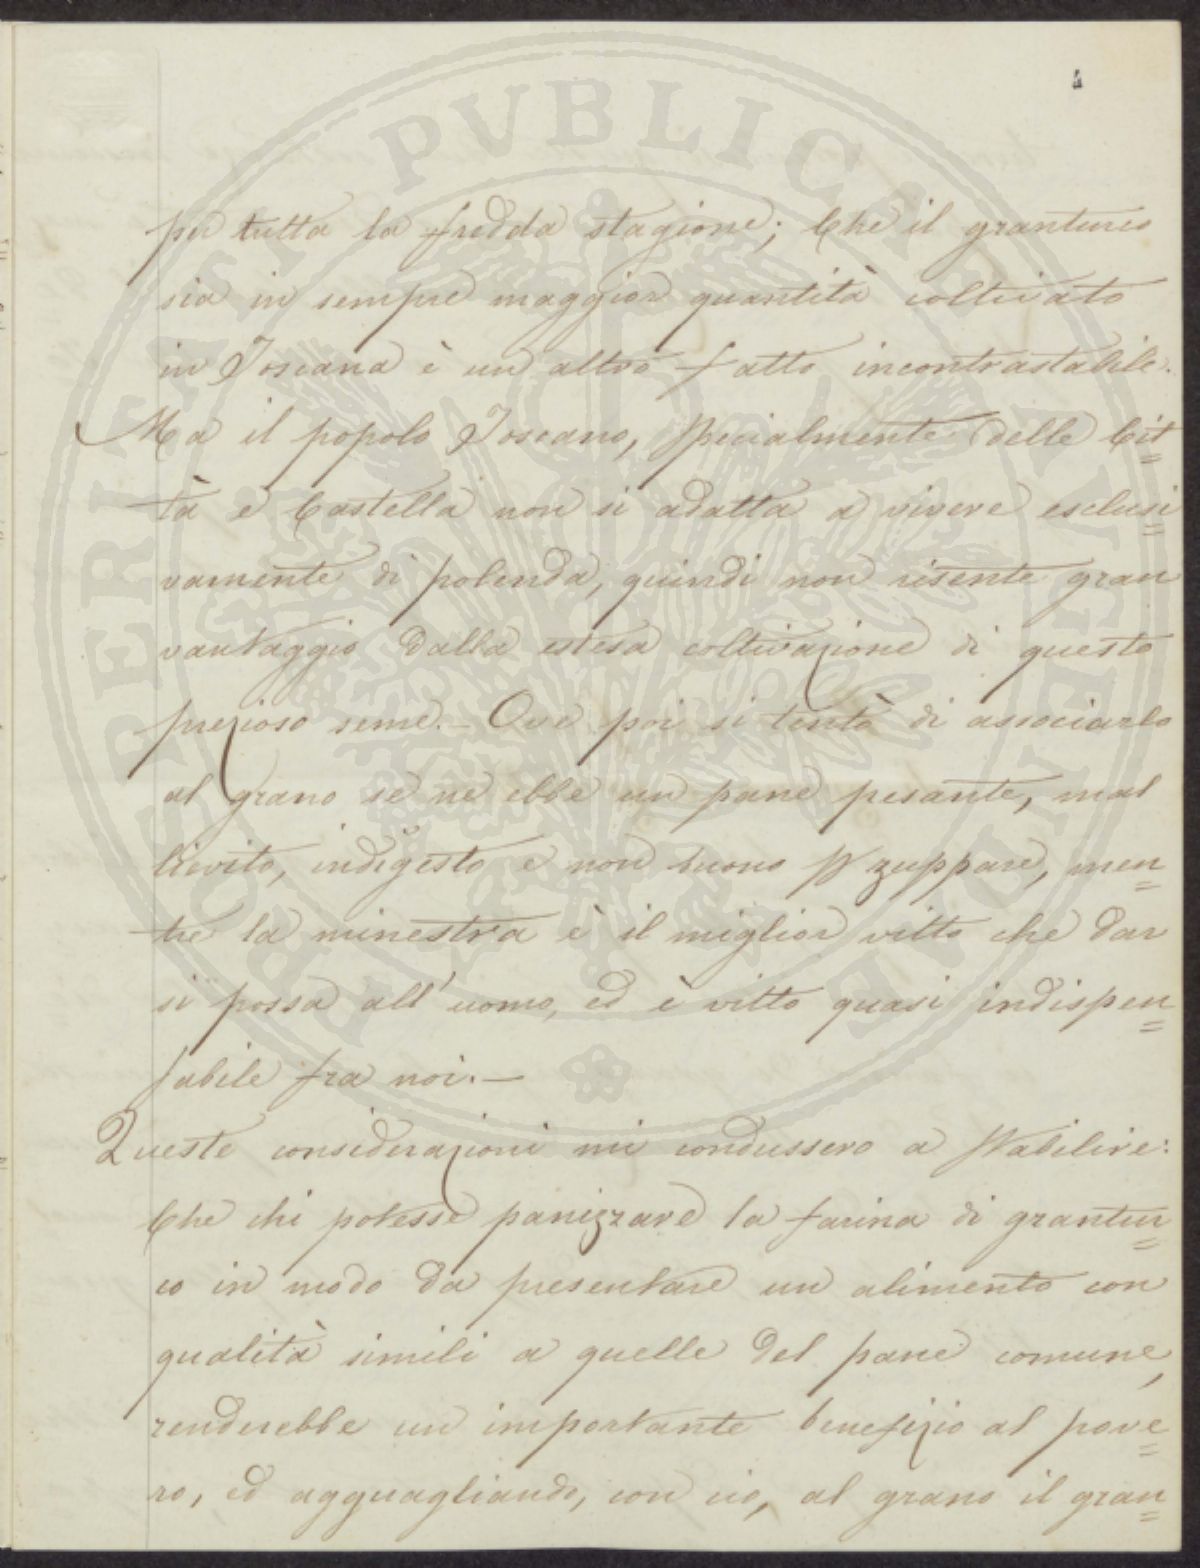 4
per tutta la fredda stagione; Che il granturco
sia in sempre maggior quantità coltivato
in Toscana è un altro fatto incontrastabile.
Ma il popolo Toscano, specialmente delle Cit=
tà e Castella non si adatta a vivere esclusi=
vamente di polenda, quindi non risente gran
vantaggio dalla estesa coltivazione di questo
prezioso seme. — Ove poi si tentò di associarlo
al grano se ne ebbe un pane pesante, mal
lievito, indigesto e non buono p zuppare, men=
tre la minestra è il miglior vitto che dar
si possa all'uomo, ed è vitto quasi indispen=
sabile fra noi. —
Queste considerazioni mi condussero a stabilire:
Che chi potesse panizzare la farina di grantur=
co in modo da presentare un alimento con
qualità simili a quelle del pane comune,
renderebbe un importante benefizio al pove=
ro, ed agguagliando, con ciò, al grano il gran=
PROSPERITAS PVBLICAE AVGENDAE